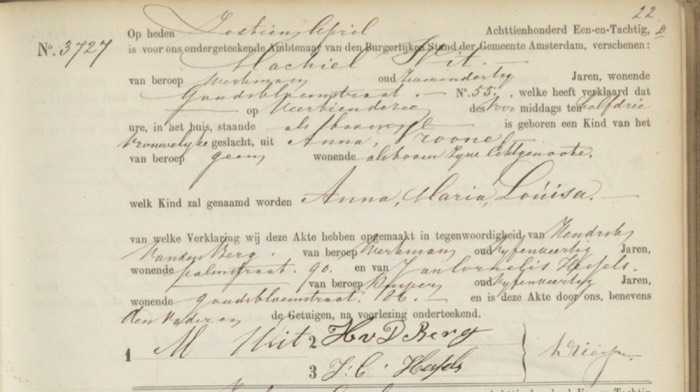 22
Op heden Zestien April Achttienhonderd Een-en-Tachtig,
No. 3727 is voor ons ondergeteekende Ambtenaar van den Burgerlijken Stand der Gemeente Amsterdam, verschenen:
Machiel Smit.
van beroep Werkman oud Jaren, wonende
Goudsbloemstraat No. 55, welke heeft verklaard dat
op Veertiendezer des voor middags ten half drie
ure, in het huis, staande als boven is geboren een Kind van het
Vrouwelyke geslacht, uit Anna, Vroone,
van beroep geen wonende als boven Zyne Echtgenoote.
welk Kind zal genaamd worden Anna, Maria, Louisa.
van welke Verklaring wij deze Akte hebben opgemaakt in tegenwoordigheid van Hendrik
Vanden Berg. van beroep Werkman oud Vyfenveertig Jaren,
wonende palmstraat. 90. en van Jan Cornelis Hessels.
van beroep oud Vyfenveertig Jaren,
wonende goudsbloemstraat. en is deze Akte door ons, benevens
den Vader en de Getuigen, na voorlezing onderteekend.
1 M Smit 2 H v D Berg
3 J. C. Hessels